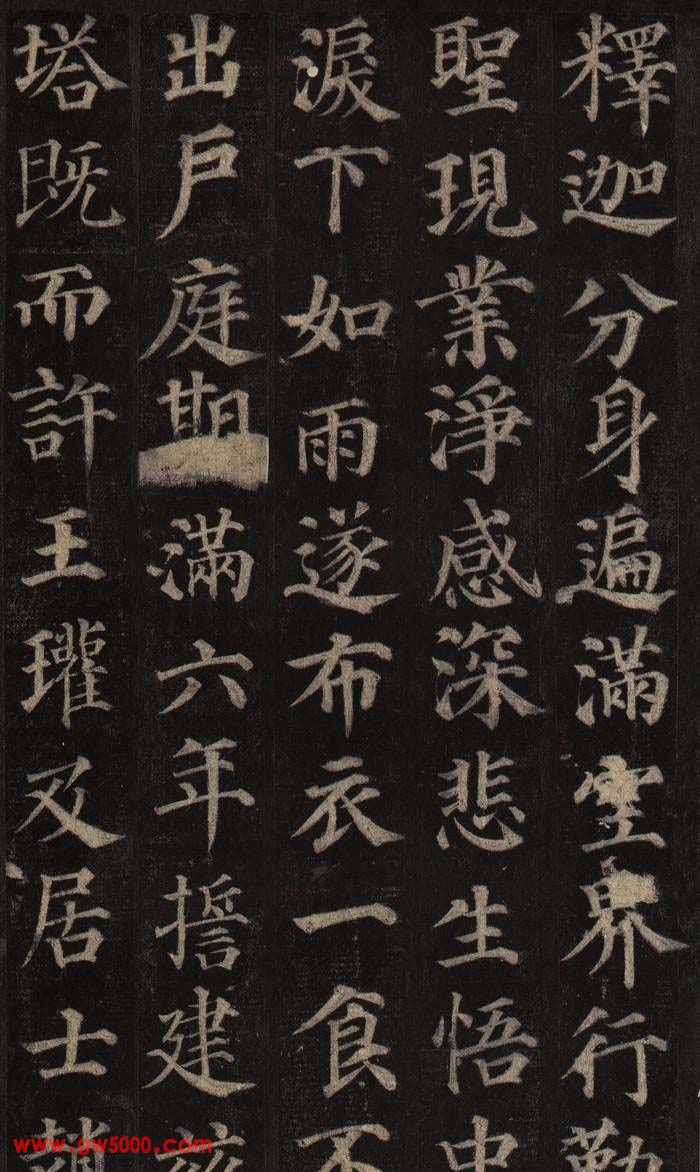 釋迦分身遍滿空界行勤
聖現業淨感深悲生悟中
淚下如雨遂布衣一食不
出戶庭期滿六年誓建茲
塔既而許王瓘及居士趙
www.gw5000.com